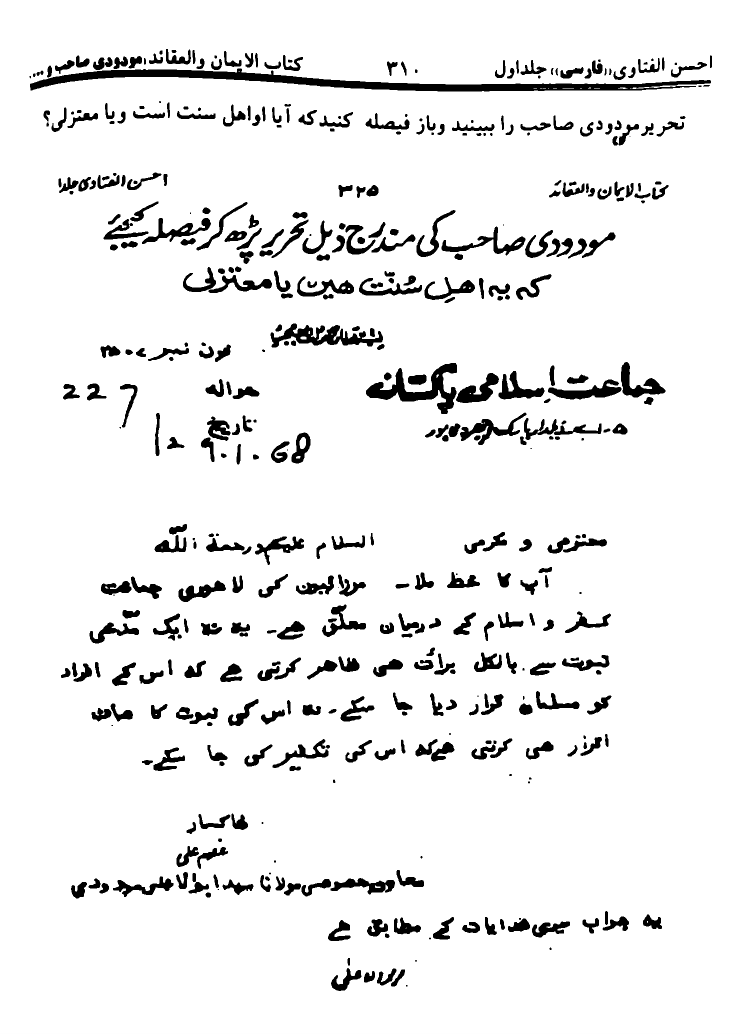 احسن الفتاوی «فارسی» جلد اول ۳۱۰ کتاب الایمان والعقائد، مودودی صاحب و ....
تحریر مودودی صاحب را ببینید وباز فیصله کنید که آیا او اهل سنت است ویا معتزلی؟
کتاب الایمان والعقائد ۳۲۵ احسن الفتاوی جلد ۱
مودودی صاحب کی مندرج ذیل تحریر پڑھ کر فیصلہ کیجئے
کہ یہ اهلِ سُنّت هیں یا معتزلی
فون نمبر
جماعت اسلامی پاکستان
حوالہ 227
۵-اے ذیلدار پارک اچھرہ لاہور
تاریخ 9.1.68
محترمی و مکرمی السلام علیکم ورحمۃ اللّٰہ
آپ کا خط ملا۔ مرزائیوں کی لاهوری جماعت
کفر و اسلام کے درمیان معلّق ھے۔ یہ نہ ایک مدّعی
نبوت سے بالکل برائت ھی ظاھر کرتی ھے کہ اس کے افراد
کو مسلمان قرار دیا جا سکے۔ نہ اس کی نبوت کا صاف
اقرار ھی کرتی ھے کہ اس کی تکفیر کی جا سکے۔
خاکسار
معاون خصوصی مولانا سید ابوالاعلی مودودی
یہ جواب میری ھدایات کے مطابق ھے
ابوالاعلیٰ